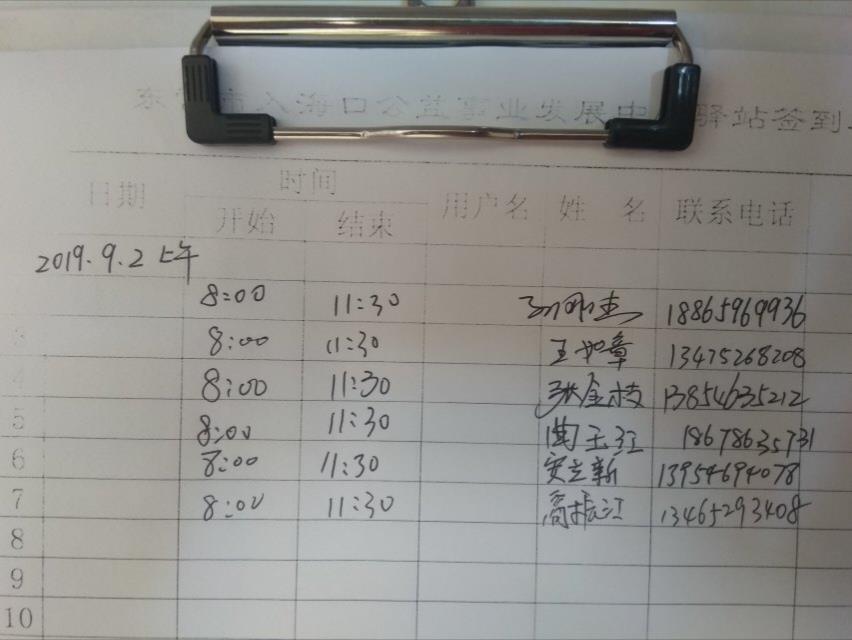 市入海口公益事业发展中 驿站签到
日期 时间 用户名 姓 名 联系电话
开始 结束
2019.9.2 上午
8:00 11:30 18865969936
3 8:00 11:30 13475268208
4 8:00 11:30 张金枝 13854635212
5 8:00 11:30 18678635731
6 8:00 11:30 安立新 13954694078
7 8:00 11:30 高振江 13465293408
8
9
10